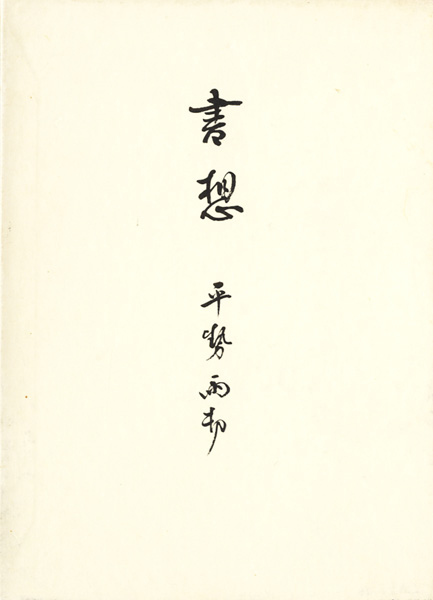 書想
平勢雨邨